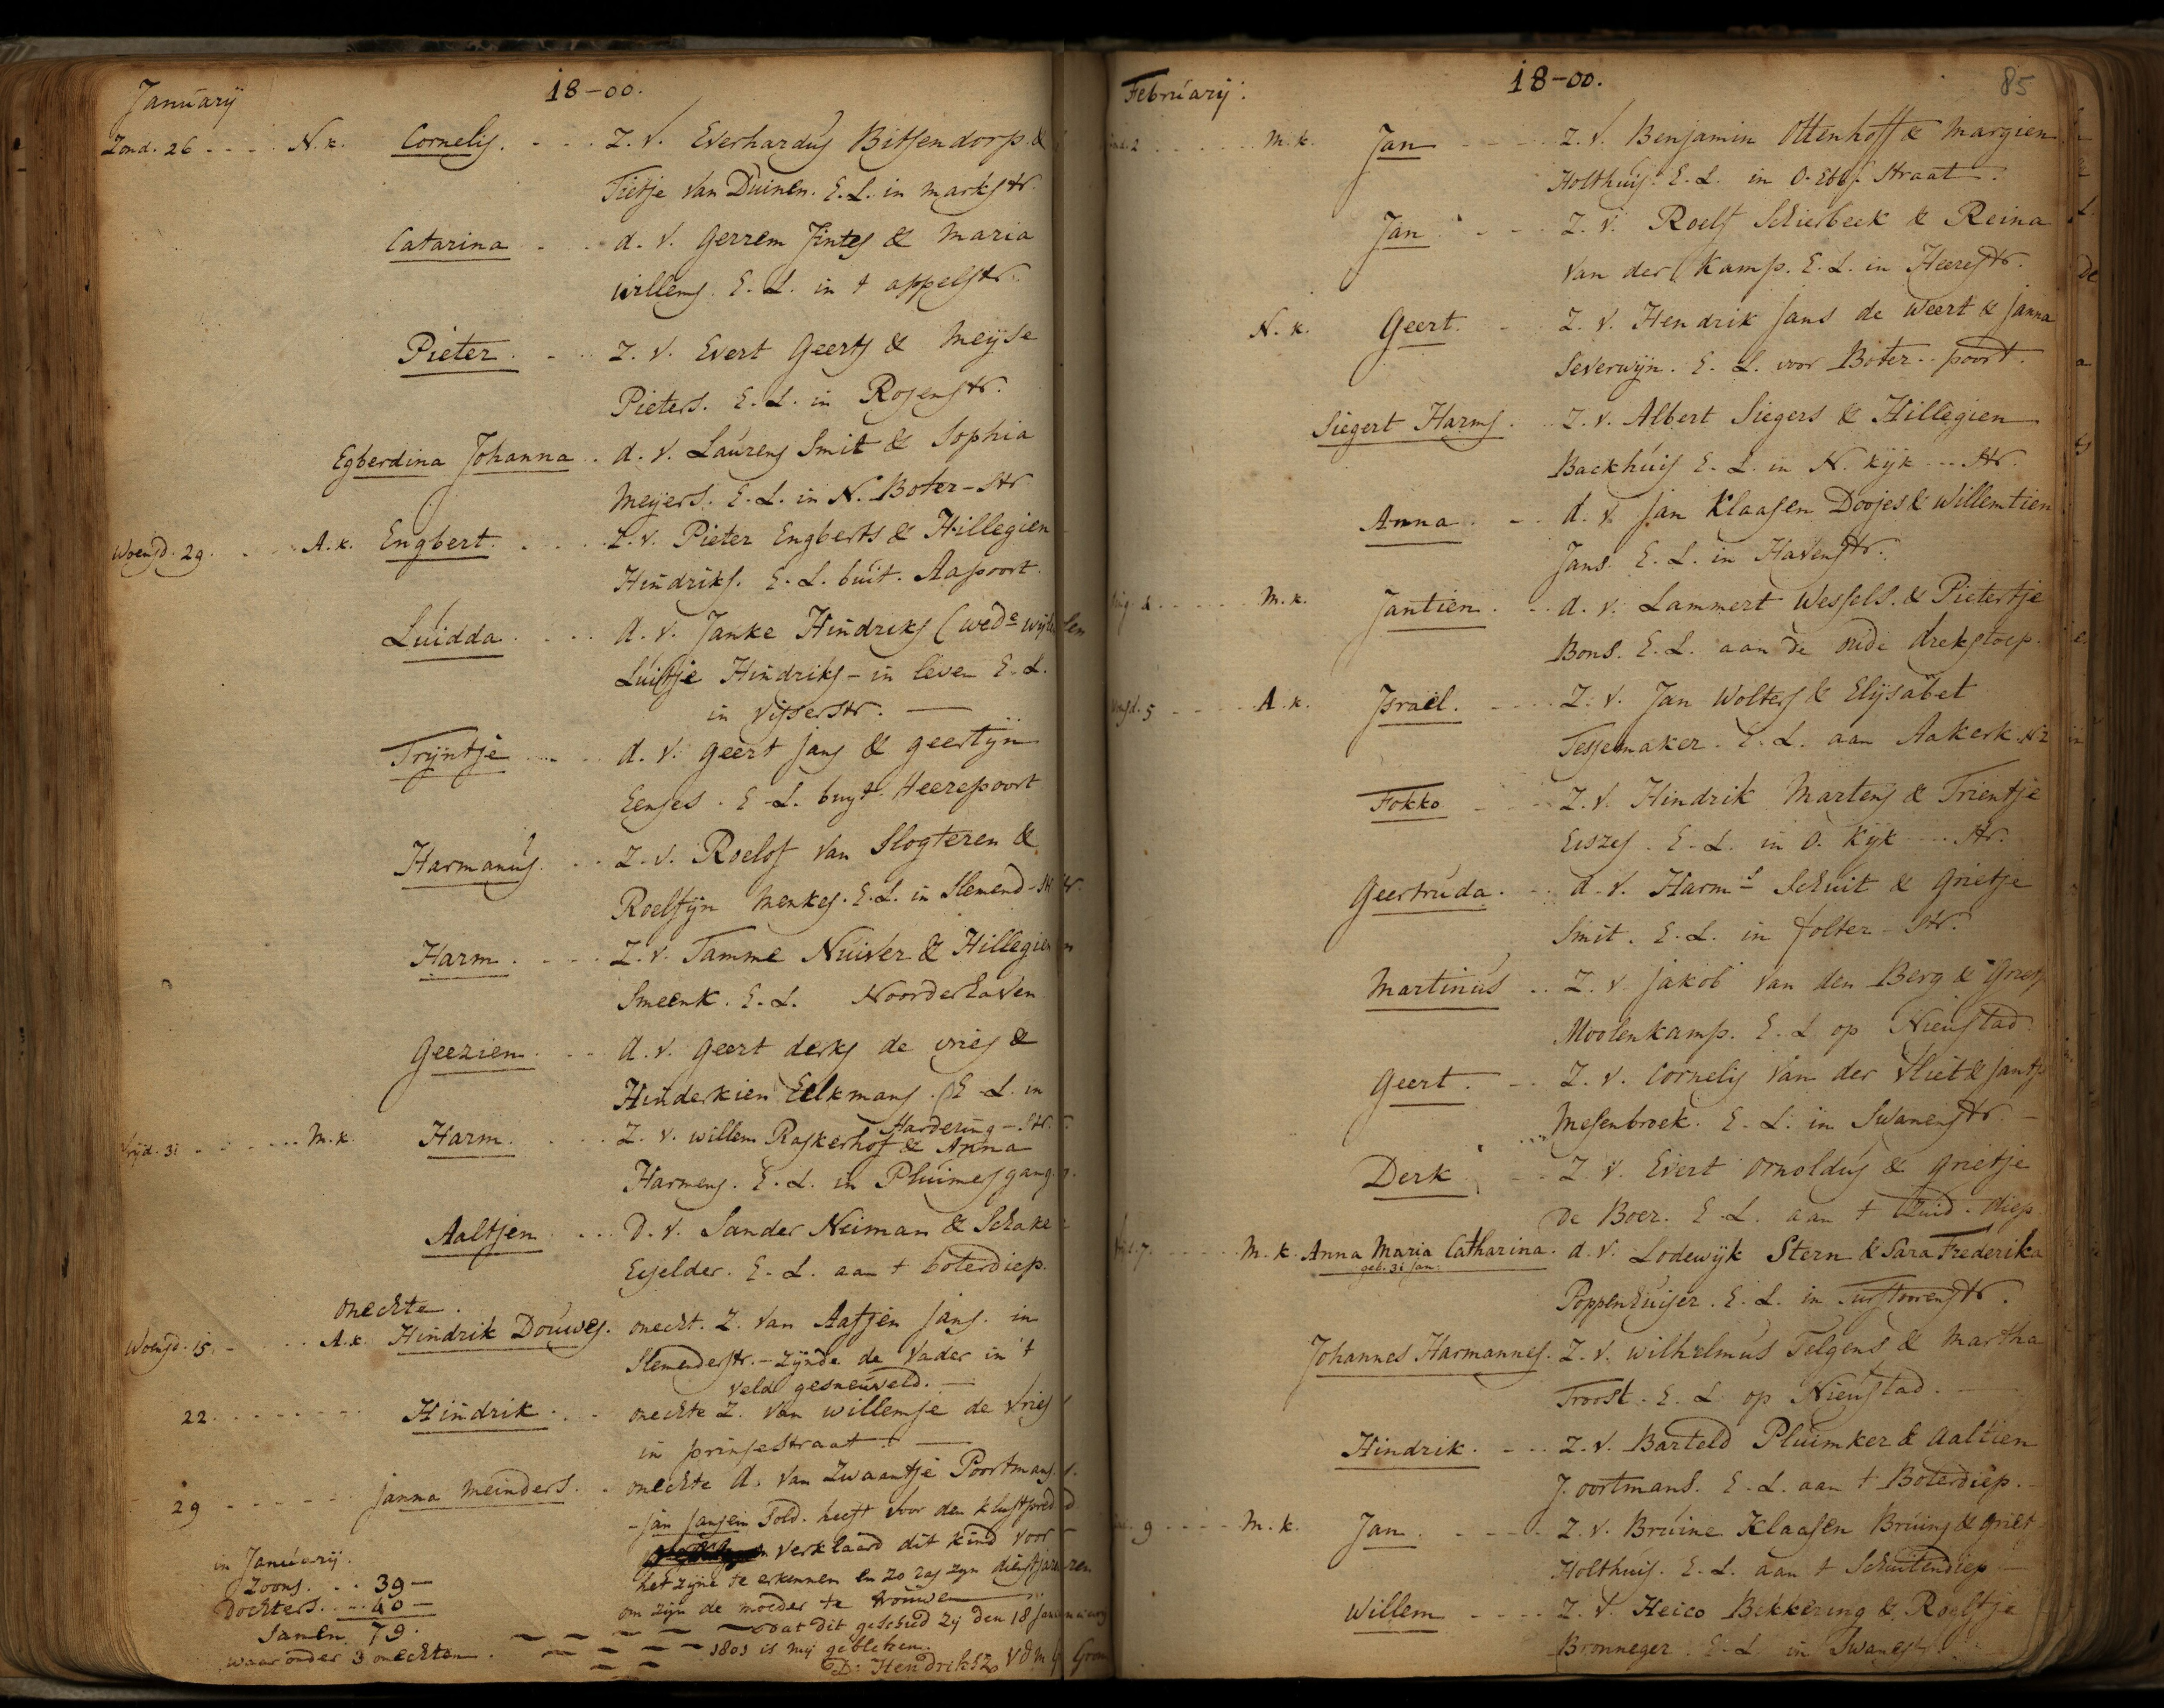 January
18-00.
Zond. 26 - - - - N. k. Cornelis. - - - Z. v. Everhardus Bitsendorp &
Tietje van Duinen. E. L. in markstr.
Catarina - - d. v. Gerrem Jintes & Maria
willems. E. L. in t appelstr.
Pieter. - - Z. v. Evert Geerts & Meijse
Pieters. E. L. in Rosenstr.
Egberdina Johanna . d. v. Laurens Smit & Sophia
Meijers. E. L. in N. Boter-str
Woensd. 29. - - - A. k. Engbert. - - - Z. v. Pieter Engberts & Hillegien
Hindriks. E. L. buit. Aapoort.
Luidda. - - - d. v. Janke Hindriks (wede wijlen
Luitje Hindriks - in leven E. L.
in Visserstr. —
Trijntje - - - d. v. geert jans & geertijn
Eenjes. E. L. buyt. Heerepoort
Harmanus. - - Z. v. Roelof van Slogteren &
Roelfijn Menkes. E. L. in Slemend-str.
Harm. - - - Z. v. Tamme Nuiver & Hillegien
Smeenk. E. L. Noorderhaven
Geezien. - - d. v. geert derks de vries &
Hinderkien Eelkmans. E. L. in
Hardering-str.
Vrijd. 31 - - - - M. k. Harm. - - - Z. v. willem Raskerhof & Anna
Harmens. E. L. in Pluimersgang.
Aaltjen. - - - D. v. Sander Neiman & Schake
Eijelder. E. L. aan t boterdiep.
onechte.
Woensd. 15. - - - A. k. Hindrik Douwes. onecht. Z. van Aafjen jans. in
Slemenderstr. - zijnde de vader in 't
veld gesneuveld. —
22. - - - - - - - Hindrik. - - onechte Z. van willemje de vries
in prinsestraat. —
29 - - - - - - janna meinders. - onechte d. van Zwaantje Poortmans.
- jan jansen Sold. heeft voor den
verklaard dit kind voor
het zijne te erkennen en zo ras zyn dienstjaren
om zijn de moeder te trouwen —
dat dit geschied zij den 18 january
1801 is mij gebleken.
D: Hendriksz VDM
in January.
Zoons. - - 39 —
Dochters. - - 40 —
Samen. 79.
waaronder 3 onechten.
February.
18-00.
85
2 - - - - - M. k. Jan - - - Z. v. Benjamin Ottenhoff & Margien
Holthuis. E. L. in O. Ebb. straat.
Jan - - - Z. v. Roelf Schierbeek & Reina
van der Kamp. E. L. in Heerestr.
N. k. Geert. - - Z. v. Hendrik Jans de Weert & Janna
Severwijn. E. L. voor Boter-poort.
Siegert Harms. - Z. v. Albert Siegers & Hillegien
Backhuis E. L. in N. kijk - - str.
Anna. - - d. v. Jan Klaasen Doojes & Willemtien
Jans. E. L. in Havenstr.
M. k. Jantien. - - d. v. Lammert Wessels. & Pietertje
Bons. E. L. aan de oude drekstoep.
5 - - - - A. k. Israël. - - - Z. v. Jan Wolters & Elijsabet
Tessemaker. E. L. aan Aakerk. N 2
Fokko - - - Z. v. Hindrik Martens & Trientje
Eiszes. E. L. in O. Kijk - - str.
Geertruda. - - d. v. Harms Schuit & Grietje
Smit. E. L. in folter-str.
Martinus - - Z. v. jakob van den Berg &
Moolenkamp. E. L. op Nieustad.
Geert. - - Z. v. Cornelis van der Vliet & Jantje
Mesenbroek. E. L. in Swanenstr —
Derk. - - Z. v. Evert Arnoldus & grietje
De Boer. E. L. aan t Zuid-diep.
7. - - - - M. k. Anna Maria Catharina. d. v. Lodewijk Stern & Sara Frederika
geb. 31 Jan.
Poppenhuiser. E. L. in Turftoorenstr.
Johannes Harmannes. Z. v. wilhelmus Telgens & Martha
Troost. E. L. op Nieustad. —
Hindrik. - - Z. v. Barteld Pluimker & Aaltien
Poortmans. E. L. aan t Boterdiep. -
9 - - - - M. k. Jan. - - - Z. v. Bruine Klaasen Bruins & Griet
Holthuis. E. L. aan t Schuitendiep —
Willem - - - Z. v. Heico Bekkering & Roelfje
Bronneger. E. L. in Swanestr.